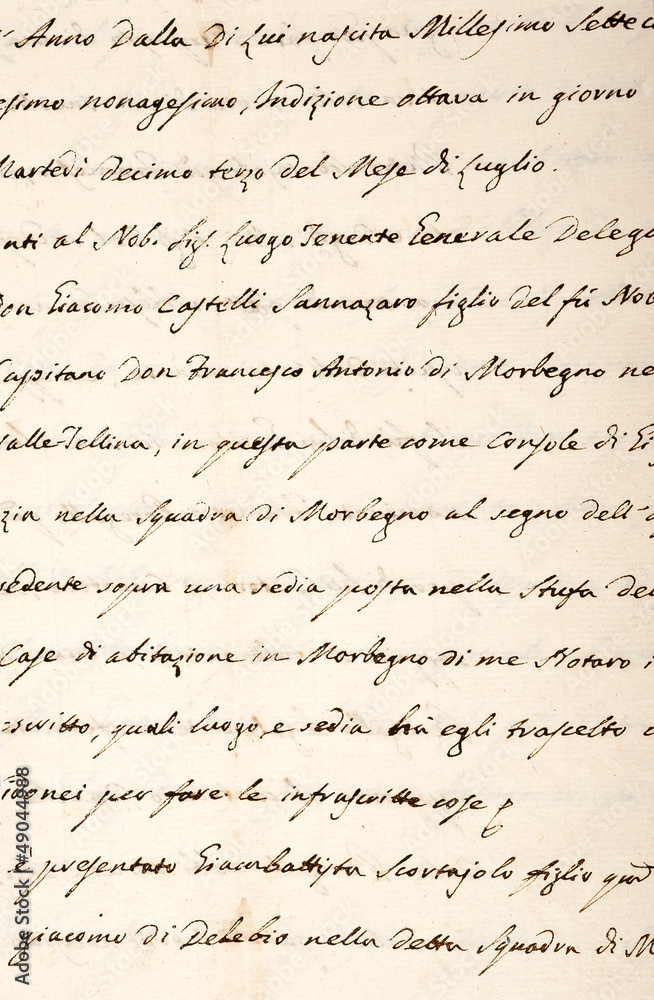 Anno Dalla Di Lui nascita Millesimo Settec
esimo nonagesimo, Indizione ottava in giorno
Martedi decimo terzo del Mese di Luglio.
nti al Nob. Sig. Luogo Tenente Generale Delega
Don Giacomo Castelli Sannazaro figlio del fú Nob
Capitano Don Francesco Antonio di Morbegno ne
Valle-Tellina, in questa parte come Console di Gi
zia nella Squadra di Morbegno al segno dell'
sedente sopra una sedia posta nella Stufa del
Case di abitazione in Morbegno di me Notaro i
scritto, quali luogo, e sedia hà egli trascelto
idonei per fare le infrascritte cose
è presentato Giacubattista Scortajolo figlio qm
giacomo di Delebio nella detta Squadra di M
Adobe Stock | #49044898